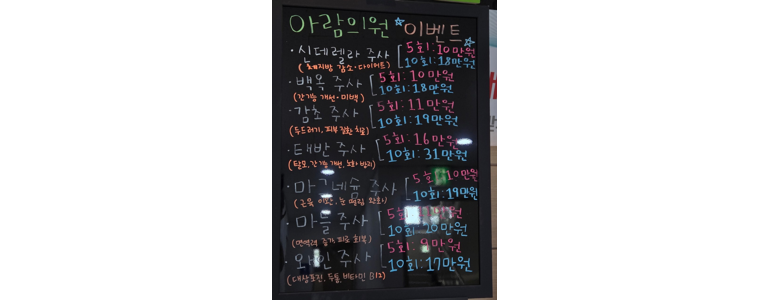 아람의원 이벤트
· 신데렐라 주사 5회: 10만원
10회: 18만원
(체지방 감소 · 다이어트)
· 백옥 주사 5회: 10만원
10회: 18만원
(간기능 개선 · 미백)
· 감초 주사 5회: 11만원
10회: 19만원
(두드러기, 피부 질환 치료)
· 태반 주사 5회: 16만원
10회: 31만원
(탈모, 간기능 개선, 노화 방지)
· 마그네슘 주사 5회: 10만원
10회: 19만원
(근육 이완, 눈 떨림 완화)
· 마늘 주사 5회:
10회: 20만원
(면역력 증가, 피로 회복)
· 와인 주사 5회: 9만원
10회: 17만원
(대상포진, 두통, 비타민 B12)